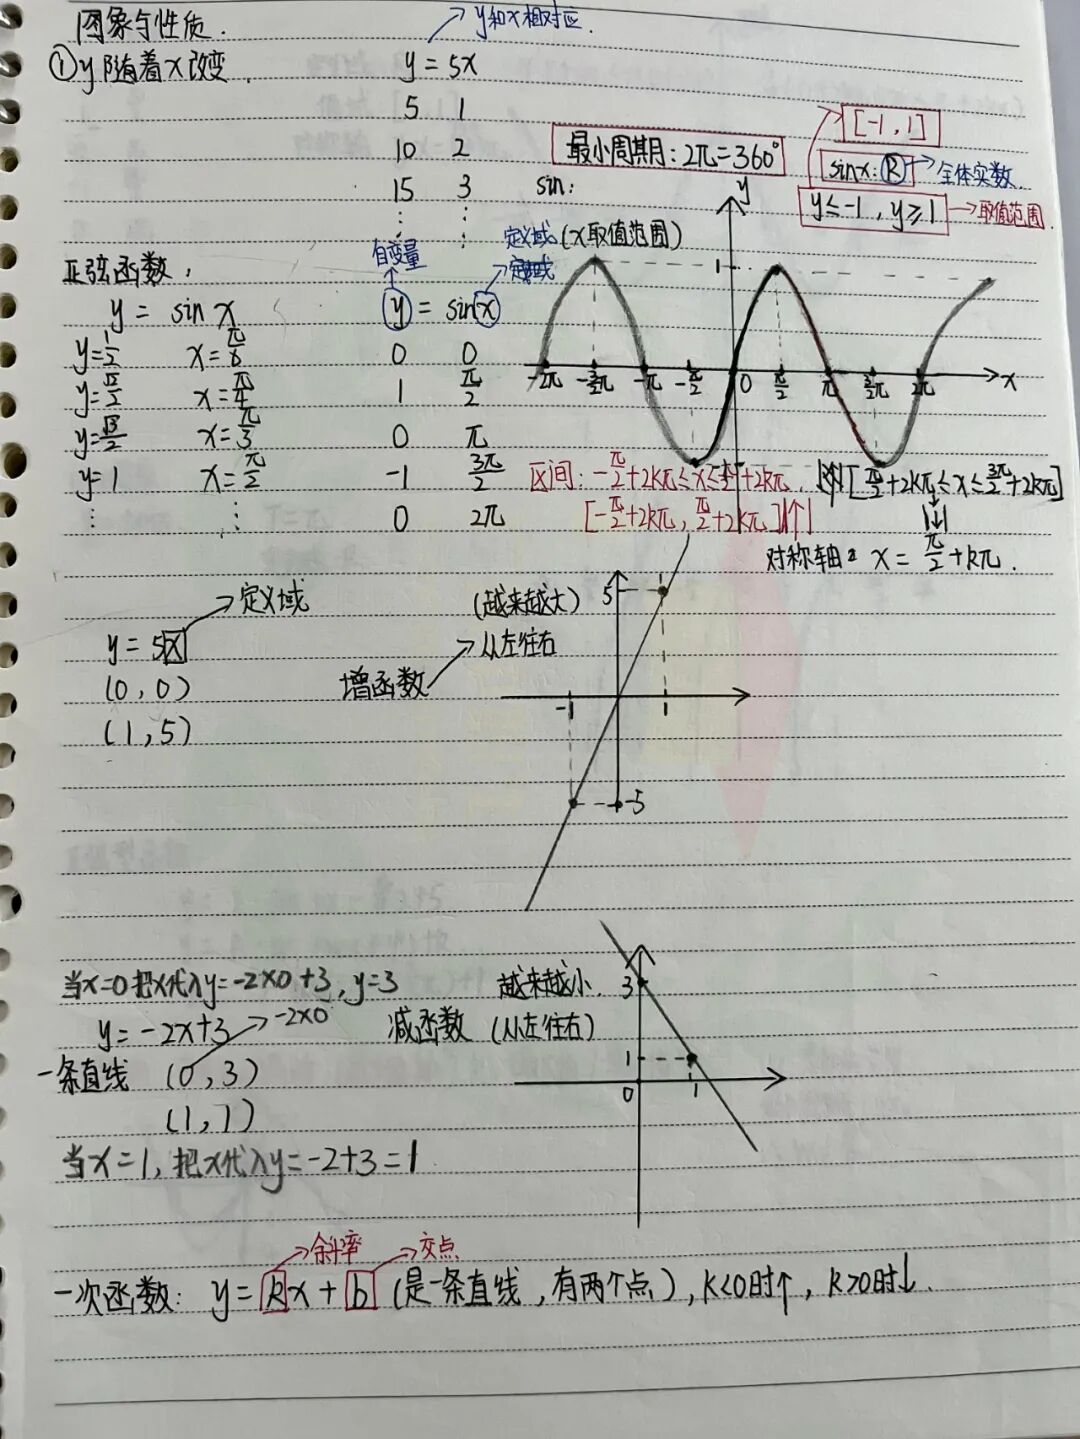 图象与性质.
→y和x相对应.
①y随着x改变.
y = 5x
5 1
10 2
15 3
⋮ ⋮
最小周期:2π=360°
[-1,1]
sinx:R→全体实数.
y≤-1,y≥1→取值范围.
sin:
定义域(x取值范围)
自变量
正弦函数,
y = sin x
y=1/2 x=π/6
y=√2/2 x=π/4
y=√3/2 x=π/3
y=1 x=π/2
⋮ ⋮
y = sin x
0 0
1 π/2
0 π
-1 3π/2
0 2π
y
1
-2π -3/2π -π -π/2 0 π/2 π 3/2π 2π x
区间:-π/2+2kπ≤x≤π/2+2kπ.
[π/2+2kπ≤x≤3π/2+2kπ]
[-π/2+2kπ,π/2+2kπ]|↑|
|↓|
对称轴: x=π/2+kπ.
→定义域
y = 5x
(0,0)
(1,5)
(越来越大)
从左往右
增函数
5
-1 1
-5
当x=0把x代入y=-2×0+3,y=3
y=-2x+3 -2×0
一条直线 (0,3)
(1,1)
当x=1,把x代入y=-2+3=1
越来越小.
减函数 (从左往右)
3
1
0 1
→斜率 →交点
一次函数: y=kx+b(是一条直线,有两个点),k<0时↑,k>0时↓.